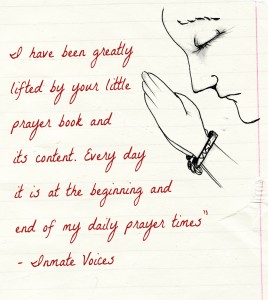 I have been greatly
lifted by your little
prayer book and
its content. Every day
it is at the beginning and
end of my daily prayer times"
- Inmate Voices